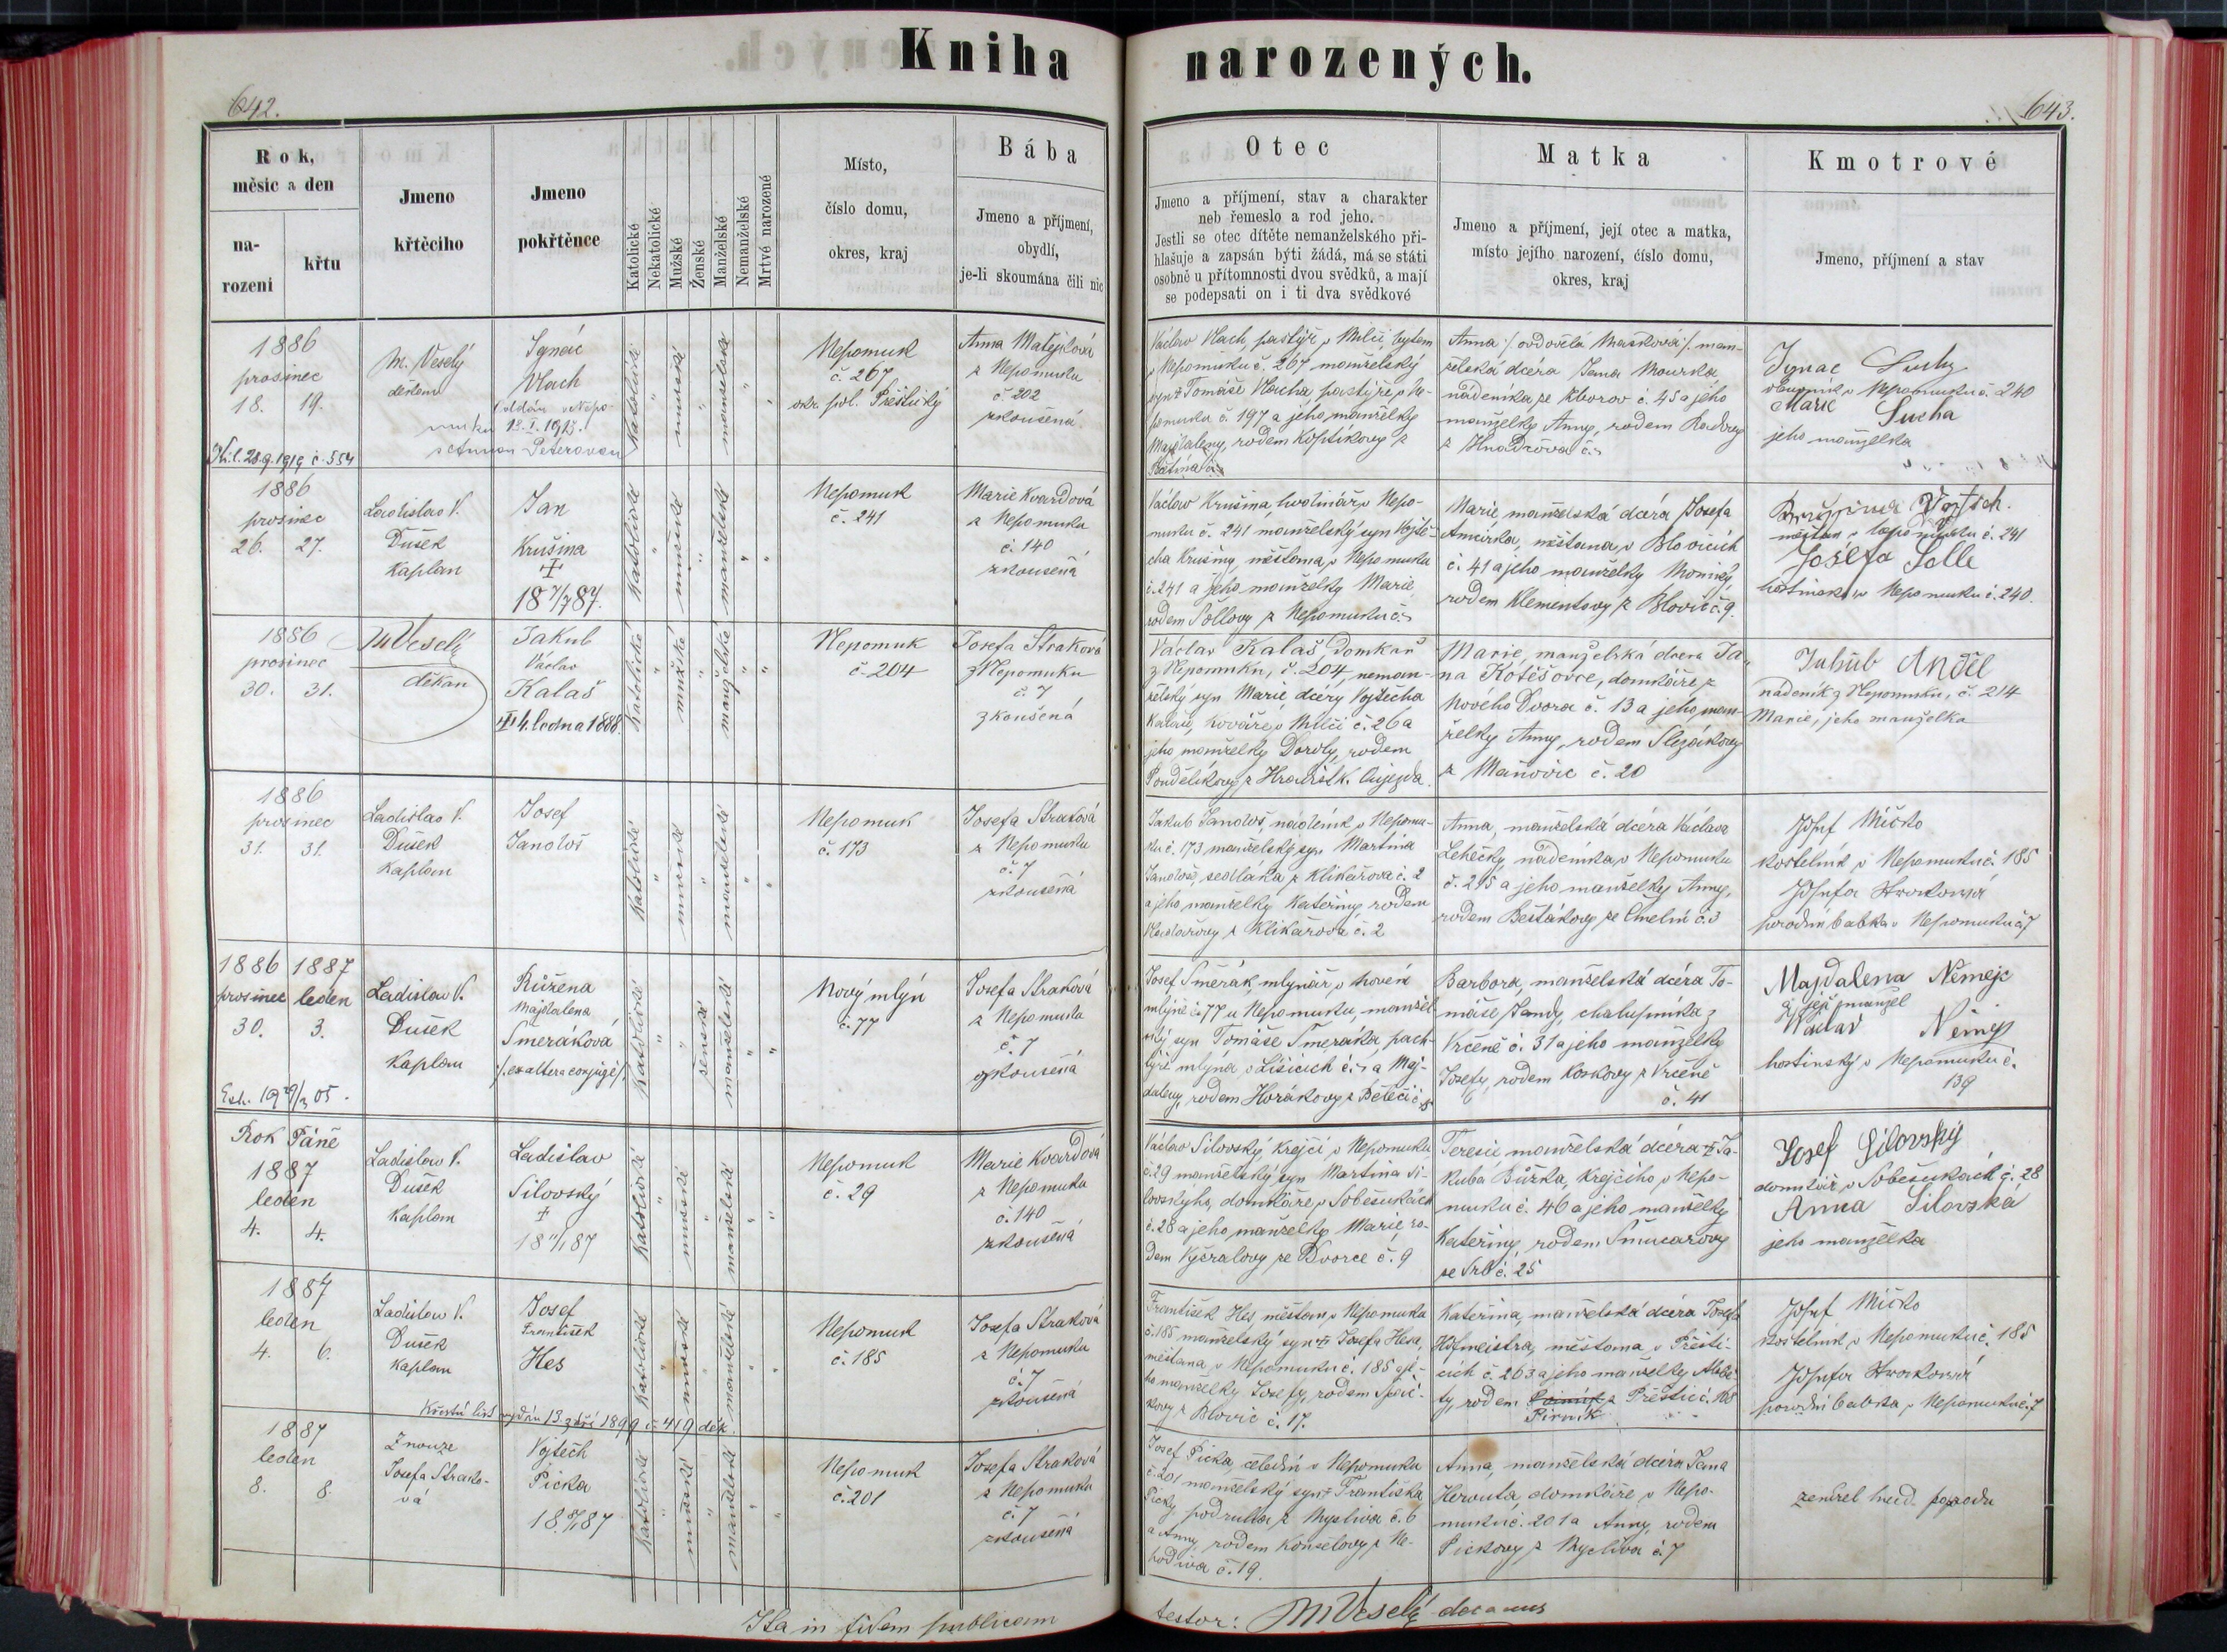 Kniha narozených.
642.
643.
Rok,
měsic a den
na-
rozeni
křtu
Jmeno
křtěcího
Jmeno
pokřtěnce
Katolické
Nekatolické
Mužské
Ženské
Manželské
Nemanželské
Mrtvé narozené
Místo,
číslo domu,
okres, kraj
Bába
Jmeno a příjmení,
obydlí,
je-li skoumána čili nic
Otec
Jmeno a příjmení, stav a charakter
neb řemeslo a rod jeho.
Jestli se otec dítěte nemanželského při-
hlašuje a zapsán býti žádá, má se státi
osobně u přítomnosti dvou svědků, a mají
se podepsati on i ti dva svědkové
Matka
Jmeno a příjmení, její otec a matka,
místo jejího narození, číslo domu,
okres, kraj
Kmotrové
Jmeno, příjmení a stav
1886
prosinec
18. 19.
M. Veselý
děkan
Ignác
Vlach
oddán v Nepo-
muku 12. I. 1913.
s Annou Peterovou
28.9.1919 č. 554
Katolické
mužské
manželské
Nepomuk
č. 267
okr. pol. Přeštický
Anna Matějková
z Nepomuku
č. 202
zkoušená
Václav Vlach, pastýř z Milčí, bytem
v Nepomuku č. 267 manželský
syn Tomáše Vlacha, pastýře z Ne-
pomuku č. 197 a jeho manželky
Majdaleny, rodem Koptíkovy z
Anna /: ovdovělá Mašková :/ man-
želská dcéra Jana Mourka
nádeníka ze Zborov č. 45 a jeho
manželky Anny, rodem Radovy
z č.
Ignac Suchy
v Nepomuku č. 240
Marie Sucha
jeho manželka
1886
prosinec
26. 27.
Ladislav V.
Dušek
kaplan
Jan
Krušina
†
18 7/7 87.
Katolické
mužské
manželské
Nepomuk
č. 241
Marie Kvardová
z Nepomuku
č. 140
zkoušená
Václav Krušina, v Nepo-
muku č. 241 manželský syn Vojtě-
cha Krušiny, měšťana v Nepomuku
č. 241 a jeho manželky Marie
rodem Sollovy z Nepomuku č.
Marie manželská dcéra Josefa
měšťana v Blovicích
č. 41 a jeho manželky
rodem Klementovy z Blovic č. 9.
Krušina Vojtěch.
měšťan v Nepomuku č. 241
Josefa Solle
v Nepomuku č. 240.
1886
prosinec
30. 31.
M Veselý
děkan
Jakub
Václav
Kalaš
4. ledna 1888.
Katolické
mužské
manželské
Nepomuk
č. 204
Josefa Straková
z Nepomuku
č. 7
zkoušená
Václav Kalaš domkář
z Nepomuku, č. 204, neman-
želský syn Marie, dcéry Vojtěcha
Kalaše, kováře v Milči č. 26 a
jeho manželky Doroty, rodem
Marie, manželská dcera Ja-
na Kotěšovce, domkáře z
Nového Dvora č. 13 a jeho man-
želky Anny, rodem Slezákovy
z Maňovic č. 20
Jakub Anděl
nádeník z Nepomuku, č. 214
Marie, jeho manželka
1886
prosinec
31. 31.
Ladislav V.
Dušek
kaplan
Josef
Jandoš
Katolické
mužské
manželské
Nepomuk
č. 173
Josefa Straková
z Nepomuku
č. 7
zkoušená
Jakub Jandoš, nádeník v Nepomu-
ku č. 173 manželský syn Martina
Jandoše, sedláka z Klikařova č. 2
a jeho manželky Kateřiny, rodem
z Klikařova č. 2
Anna, manželská dcéra Václava
Lehečky, nádeníka v Nepomuku
č. 215 a jeho manželky Anny,
rodem Bešťákovy ze Čmelín č. 3
Josef Mičko
kostelník v Nepomuku č. 185
Josefa Straková
porodní babka v Nepomuku č. 7
1886 1887
prosinec leden
30. 3.
Ladislav V.
Dušek
kaplan
Růžena
Majdalena
Smeráková
/: ex altera conjuge :/
Katolické
ženské
manželské
Nový mlýn
č. 77
Josefa Straková
z Nepomuku
č. 7
zkoušená
Josef Smerák, mlynář v novém
mlýně č. 77 u Nepomuku, manžel-
ský syn Tomáše Smeráka, pach-
týře mlýna v Lišicích č. a Maj-
daleny, rodem Horákovy z
Barbora, manželská dcéra To-
máše Jandy, chalupníka z
Vrčeně č. 31 a jeho manželky
Josefy, rodem Koskovy z Vrčeně
č. 41
Majdalena Němejc
a její manžel
Václav Němejc
hostinský v Nepomuku č.
139
Rok Páně
1887
leden
4. 4.
Ladislav V.
Dušek
kaplan
Ladislav
Silovský
†
18 11/1 87
Katolické
mužské
manželské
Nepomuk
č. 29
Marie Kvardová
z Nepomuku
č. 140
zkoušená
Václav Silovský, krejčí v Nepomuku
č. 29 manželský syn Martina Si-
lovského, domkáře v Soběsukách
č. 28 a jeho manželky Marie, ro-
dem Vyčralovy ze Dvorce č. 9
Teresie manželská dcéra † Ja-
kuba Bůžka, krejčího v Nepo-
muku č. 46 a jeho manželky
Kateřiny, rodem Šmucarovy
ze Srb č. 25
Josef Silovský
domkář v Soběsukách č. 28
Anna Silovská
jeho manželka
1887
leden
4. 6.
Ladislav V.
Dušek
kaplan
Josef
František
Hes
Křestní list vydán 13. září 1899 č. 419 děk.
Katolické
mužské
manželské
Nepomuk
č. 185
Josefa Straková
z Nepomuku
č. 7
zkoušená
František Hes, měšťan v Nepomuku
č. 185 manželský syn † Josefa Hesa,
měšťana v Nepomuku č. 185 a je-
ho manželky Josefy, rodem
z Blovic č. 17.
Kateřina, manželská dcéra Josefa
Hofmeistra, měšťana v Přešti-
cích č. 263 a jeho manželky Alžbě-
ty, rodem z Přeštic č. 108
Pirník
Josef Mičko
kostelník v Nepomuku č. 185
Josefa Straková
porodní babka v Nepomuku č. 7
1887
leden
8. 8.
Z nouze
Josefa Strako-
vá
Vojtěch
Picka
18 8/1 87
Katolické
mužské
manželské
Nepomuk
č. 201
Josefa Straková
z Nepomuku
č. 7
zkoušená
Josef Picka, čeledín v Nepomuku
č. 201 manželský syn † Františka
Picky, podruha z Mysliva č. 6
a Anny, rodem z Ne-
hodiva č. 19.
Anna, manželská dcéra Jana
Herouta, domkáře v Nepo-
muku č. 201 a Anny, rodem
Pickovy z Myslíva č. 7
zemřel hned po porodu
Ita in fidem publicam
testor: M Veselý decanus